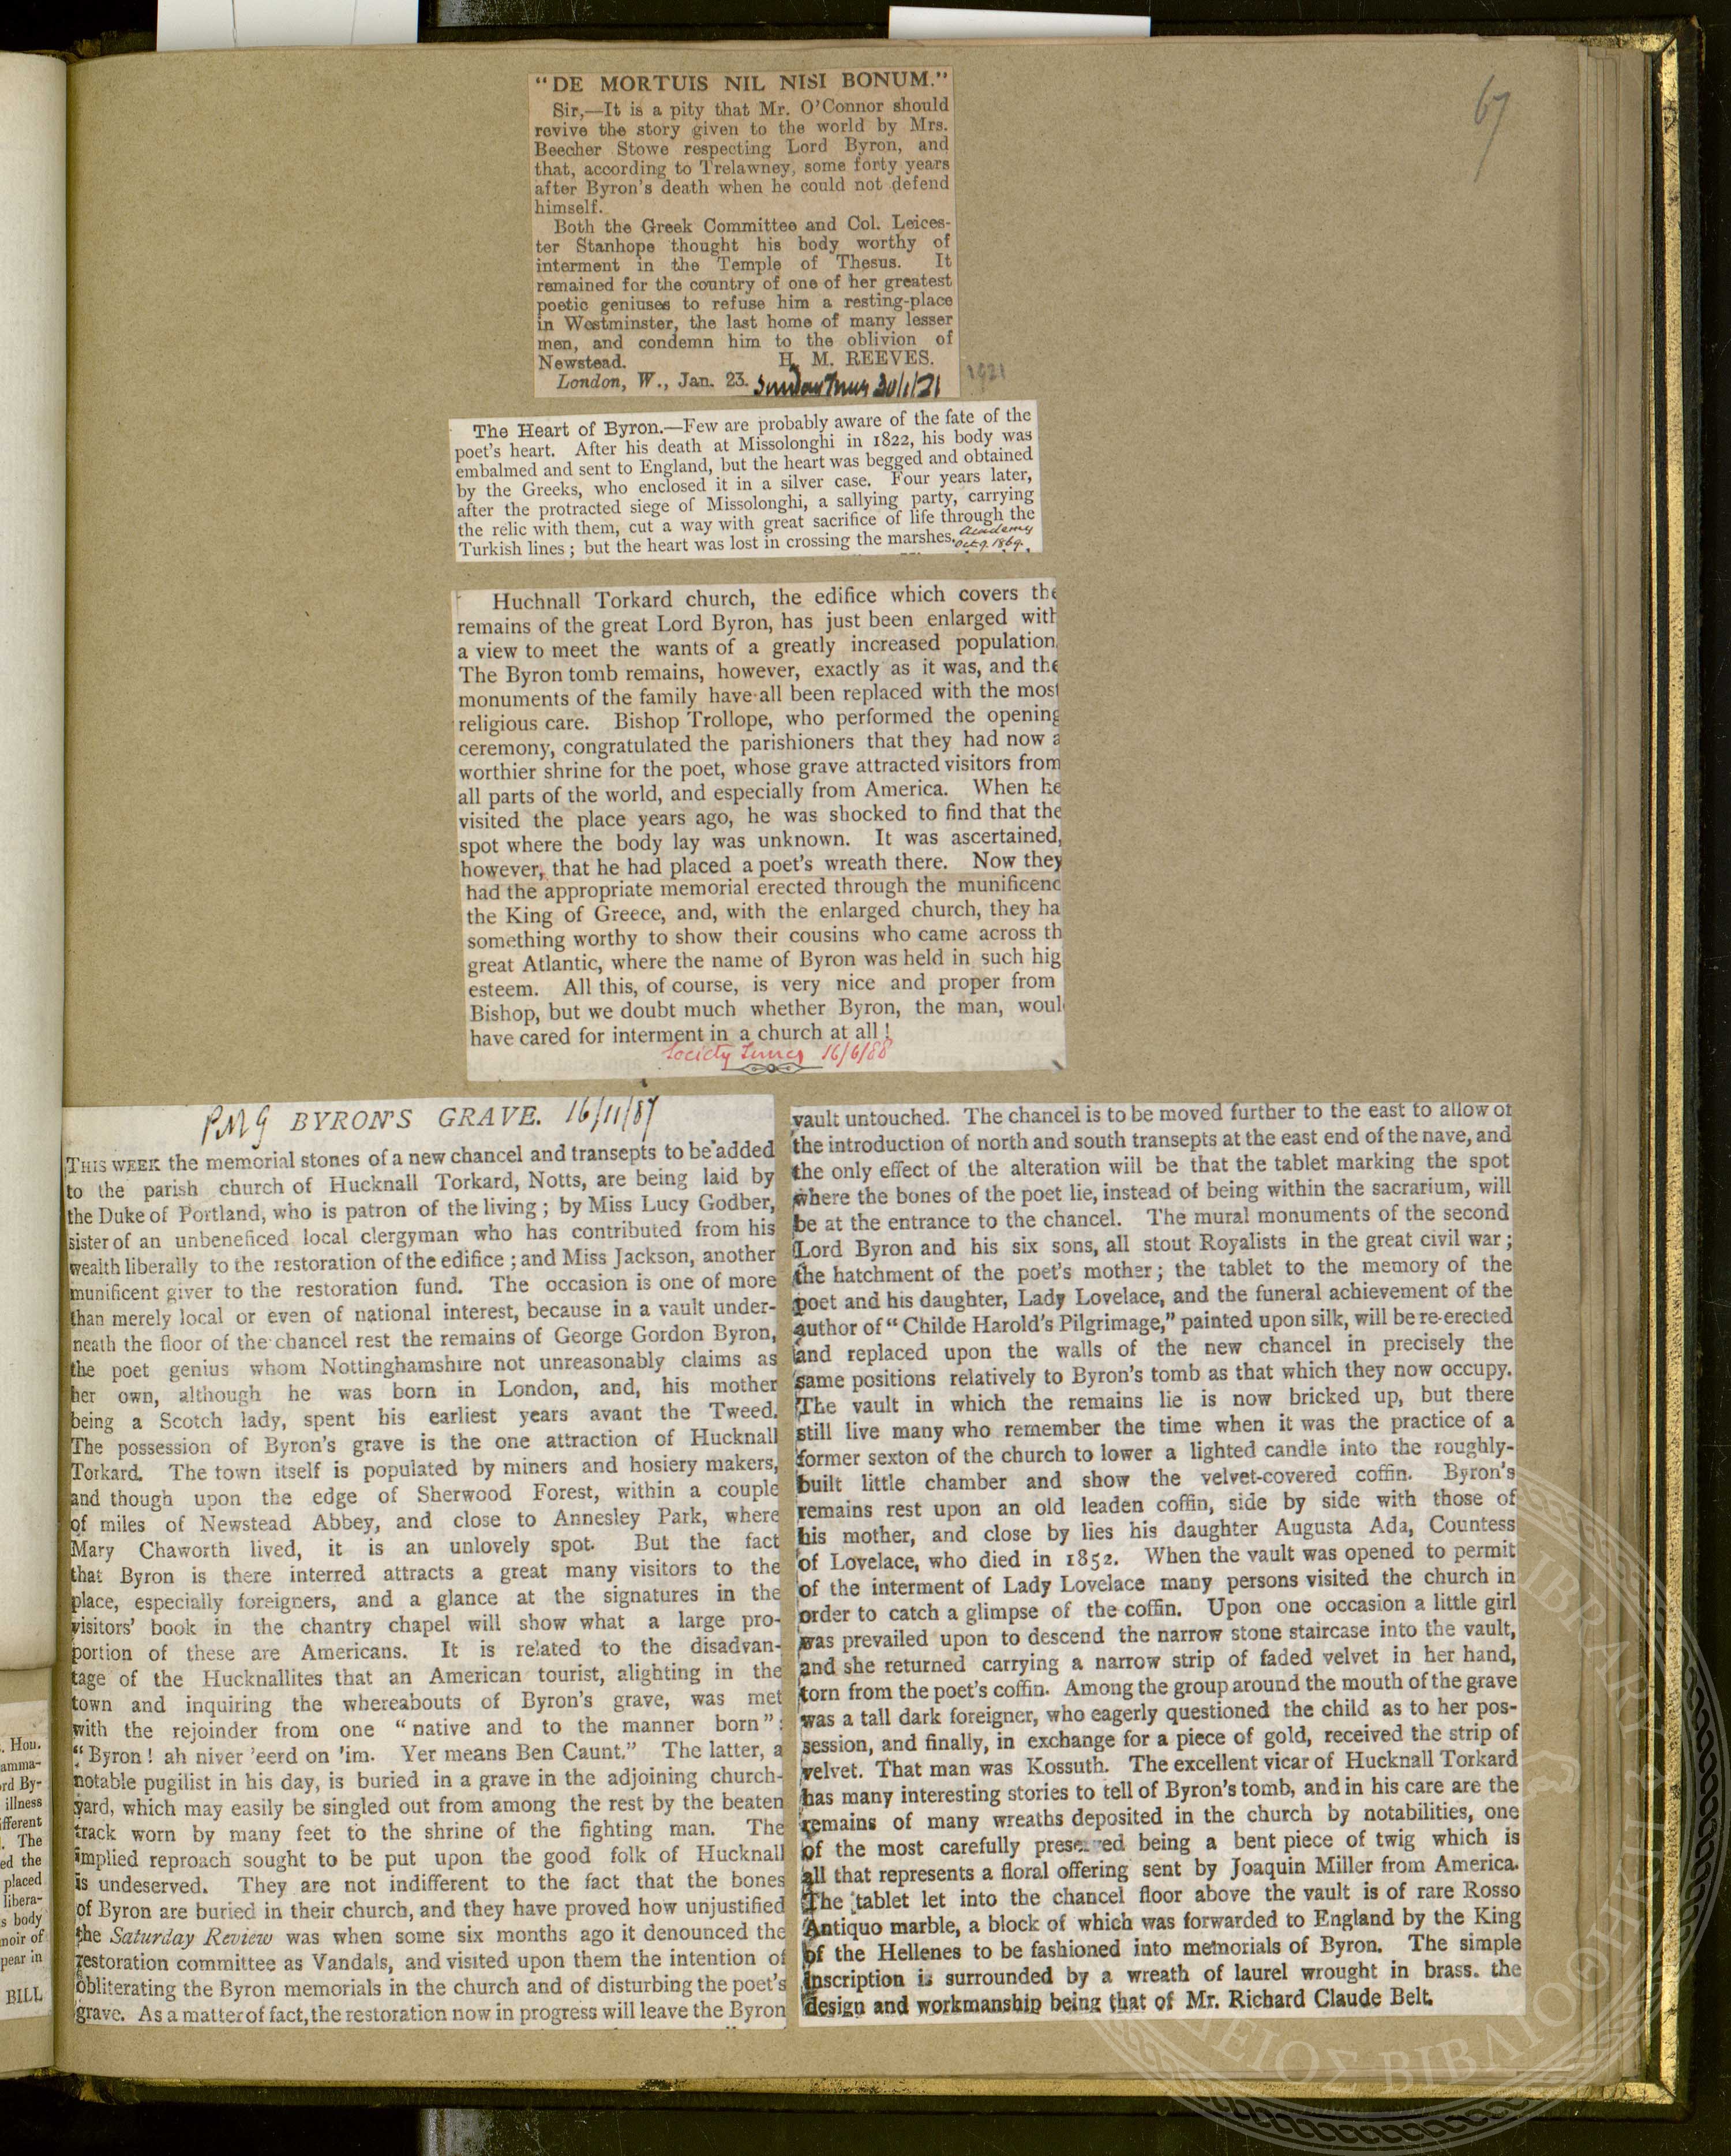 67
"DE MORTUIS NIL NISI BONUM."
Sir,—It is a pity that Mr. O'Connor should
revive the story given to the world by Mrs.
Beecher Stowe respecting Lord Byron, and
that, according to Trelawney, some forty years
after Byron's death when he could not defend
himself.
Both the Greek Committee and Col. Leices-
ter Stanhope thought his body worthy of
interment in the Temple of Thesus. It
remained for the country of one of her greatest
poetic geniuses to refuse him a resting-place
in Westminster, the last home of many lesser
men, and condemn him to the oblivion of
Newstead. H. M. REEVES.
London, W., Jan. 23. Sunday Times 30/1/21 1921
The Heart of Byron.—Few are probably aware of the fate of the
poet's heart. After his death at Missolonghi in 1822, his body was
embalmed and sent to England, but the heart was begged and obtained
by the Greeks, who enclosed it in a silver case. Four years later,
after the protracted siege of Missolonghi, a sallying party, carrying
the relic with them, cut a way with great sacrifice of life through the
Turkish lines; but the heart was lost in crossing the marshes. Academy
Oct 9. 1869.
Huchnall Torkard church, the edifice which covers the
remains of the great Lord Byron, has just been enlarged with
a view to meet the wants of a greatly increased population.
The Byron tomb remains, however, exactly as it was, and the
monuments of the family have all been replaced with the most
religious care. Bishop Trollope, who performed the opening
ceremony, congratulated the parishioners that they had now a
worthier shrine for the poet, whose grave attracted visitors from
all parts of the world, and especially from America. When he
visited the place years ago, he was shocked to find that the
spot where the body lay was unknown. It was ascertained,
however, that he had placed a poet's wreath there. Now they
had the appropriate memorial erected through the munificenc
the King of Greece, and, with the enlarged church, they ha
something worthy to show their cousins who came across th
great Atlantic, where the name of Byron was held in such hig
esteem. All this, of course, is very nice and proper from
Bishop, but we doubt much whether Byron, the man, woul
have cared for interment in a church at all!
Society Times 16/6/88
PMG BYRON'S GRAVE. 16/11/87
THIS WEEK the memorial stones of a new chancel and transepts to be added
to the parish church of Hucknall Torkard, Notts, are being laid by
the Duke of Portland, who is patron of the living; by Miss Lucy Godber,
sister of an unbeneficed local clergyman who has contributed from his
wealth liberally to the restoration of the edifice; and Miss Jackson, another
munificent giver to the restoration fund. The occasion is one of more
than merely local or even of national interest, because in a vault under-
neath the floor of the chancel rest the remains of George Gordon Byron,
the poet genius whom Nottinghamshire not unreasonably claims as
her own, although he was born in London, and, his mother
being a Scotch lady, spent his earliest years avant the Tweed.
The possession of Byron's grave is the one attraction of Hucknall
Torkard. The town itself is populated by miners and hosiery makers,
and though upon the edge of Sherwood Forest, within a couple
of miles of Newstead Abbey, and close to Annesley Park, where
Mary Chaworth lived, it is an unlovely spot. But the fact
that Byron is there interred attracts a great many visitors to the
place, especially foreigners, and a glance at the signatures in the
visitors' book in the chantry chapel will show what a large pro-
portion of these are Americans. It is related to the disadvan-
tage of the Hucknallites that an American tourist, alighting in the
town and inquiring the whereabouts of Byron's grave, was met
with the rejoinder from one "native and to the manner born":
"Byron! ah niver 'eerd on 'im. Yer means Ben Caunt." The latter, a
notable pugilist in his day, is buried in a grave in the adjoining church-
yard, which may easily be singled out from among the rest by the beaten
track worn by many feet to the shrine of the fighting man. The
implied reproach sought to be put upon the good folk of Hucknall
is undeserved. They are not indifferent to the fact that the bones
of Byron are buried in their church, and they have proved how unjustified
the Saturday Review was when some six months ago it denounced the
restoration committee as Vandals, and visited upon them the intention of
obliterating the Byron memorials in the church and of disturbing the poet's
grave. As a matter of fact, the restoration now in progress will leave the Byron
vault untouched. The chancel is to be moved further to the east to allow of
the introduction of north and south transepts at the east end of the nave, and
the only effect of the alteration will be that the tablet marking the spot
where the bones of the poet lie, instead of being within the sacrarium, will
be at the entrance to the chancel. The mural monuments of the second
Lord Byron and his six sons, all stout Royalists in the great civil war;
the hatchment of the poet's mother; the tablet to the memory of the
poet and his daughter, Lady Lovelace, and the funeral achievement of the
author of "Childe Harold's Pilgrimage," painted upon silk, will be re-erected
and replaced upon the walls of the new chancel in precisely the
same positions relatively to Byron's tomb as that which they now occupy.
The vault in which the remains lie is now bricked up, but there
still live many who remember the time when it was the practice of a
former sexton of the church to lower a lighted candle into the roughly-
built little chamber and show the velvet-covered coffin. Byron's
remains rest upon an old leaden coffin, side by side with those of
his mother, and close by lies his daughter Augusta Ada, Countess
of Lovelace, who died in 1852. When the vault was opened to permit
of the interment of Lady Lovelace many persons visited the church in
order to catch a glimpse of the coffin. Upon one occasion a little girl
was prevailed upon to descend the narrow stone staircase into the vault,
and she returned carrying a narrow strip of faded velvet in her hand,
torn from the poet's coffin. Among the group around the mouth of the grave
was a tall dark foreigner, who eagerly questioned the child as to her pos-
session, and finally, in exchange for a piece of gold, received the strip of
velvet. That man was Kossuth. The excellent vicar of Hucknall Torkard
has many interesting stories to tell of Byron's tomb, and in his care are the
remains of many wreaths deposited in the church by notabilities, one
of the most carefully preserved being a bent piece of twig which is
all that represents a floral offering sent by Joaquin Miller from America.
The tablet let into the chancel floor above the vault is of rare Rosso
Antiquo marble, a block of which was forwarded to England by the King
of the Hellenes to be fashioned into memorials of Byron. The simple
inscription is surrounded by a wreath of laurel wrought in brass. the
design and workmanship being that of Mr. Richard Claude Belt.
. Hou.
amma-
rd By-
illness
ifferent
. The
ed the
placed
libera-
s body
moir of
pear in
BILL